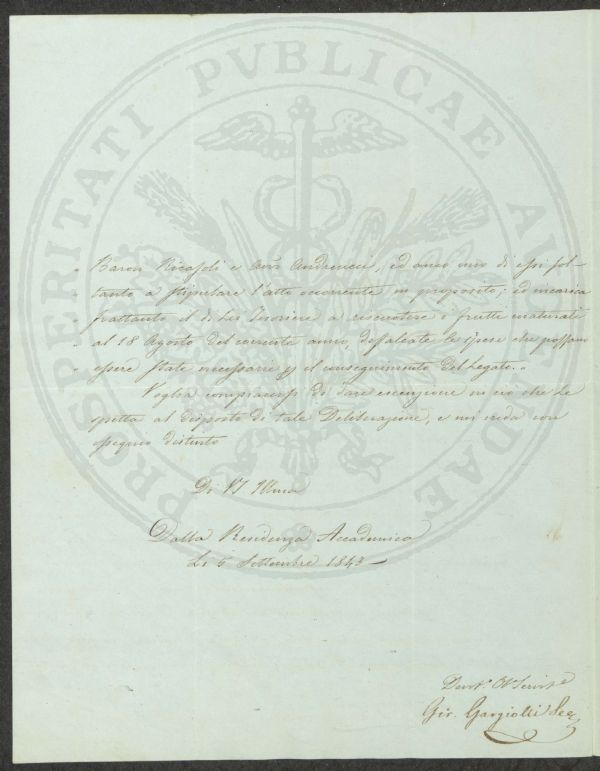 PROSPERITATI PVBLICAE AVGENDAE
„ Baron Ricasoli e Andreucci, ed anco uno di essi sol-
„ tanto a stipulare l'atto occorrente in proposito; ed incarica
„ frattanto il d. Lei Tesoriere a riscuotere i frutti maturati
„ al 18 Agosto del corrente anno, defalcate le spese che possono
„ essere state necessarie p il conseguimento del Legato. „
Voglia compiacersi di dare esecuzione in ciò che Le
spetta al disposto di tale Deliberazione, e mi creda con
ossequio distinto
Di VS Illma
Dalla Residenza Accademica
Li 5 Settembre 1843
Devot.o Servit.e
Gir. Gargiolli Seg